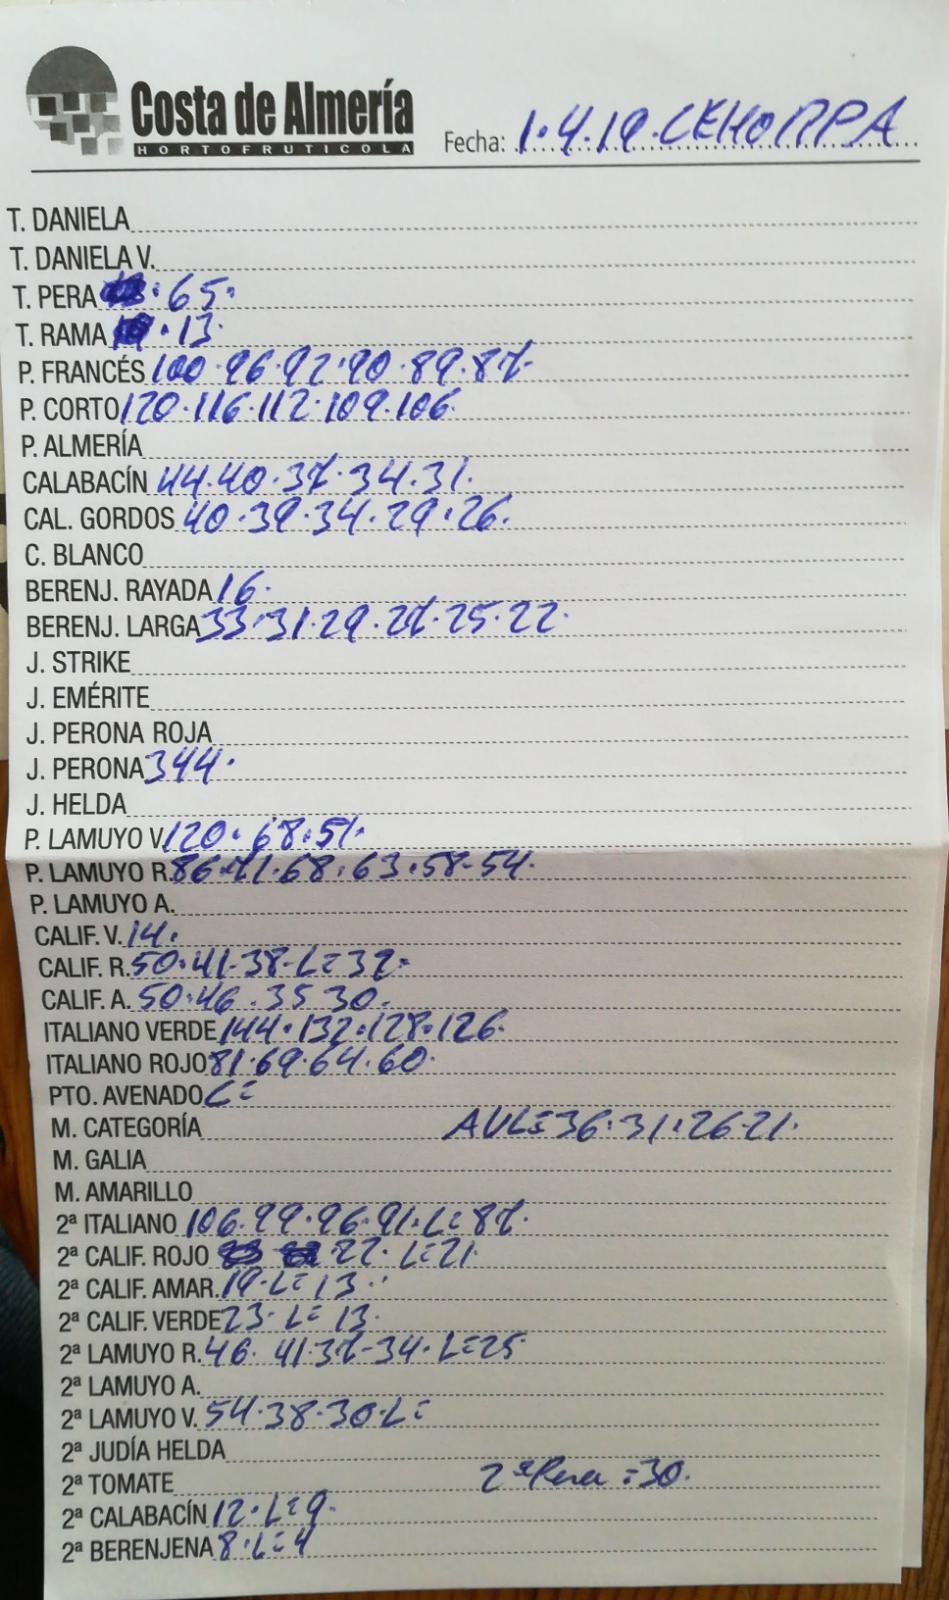 Costa de Almería
HORTOFRUTICOLA
Fecha: 1.4.19.CEHORPA
T. DANIELA
T. DANIELA V.
T. PERA . 65.
T. RAMA . 13.
P. FRANCÉS 100.96.92.90.89.87.
P. CORTO 120.116.112.109.106.
P. ALMERÍA
CALABACÍN 44.40.37.34.31.
CAL. GORDOS 40.39.34.29.26.
C. BLANCO
BERENJ. RAYADA 16.
BERENJ. LARGA 33.31.29.27.25.22.
J. STRIKE
J. EMÉRITE
J. PERONA ROJA
J. PERONA 344.
J. HELDA
P. LAMUYO V. 120.68.51.
P. LAMUYO R. 86.71.68.63.58-54.
P. LAMUYO A.
CALIF. V. 14.
CALIF. R. 50.41-38-L=32-
CALIF. A. 50.46.35 30.
ITALIANO VERDE 144.132.128.126.
ITALIANO ROJO 81.69.64.60.
PTO. AVENADO L=
M. CATEGORÍA AVL=36.31.26-21.
M. GALIA
M. AMARILLO
2ª ITALIANO 106.99.96.91.L=87.
2ª CALIF. ROJO 22. L=21
2ª CALIF. AMAR. 19-L=13.
2ª CALIF. VERDE 23. L=13.
2ª LAMUYO R. 46. 41.37-34.L=25
2ª LAMUYO A.
2ª LAMUYO V. 54.38-30-L=
2ª JUDÍA HELDA
2ª TOMATE 2ª Pera =30.
2ª CALABACÍN 12.L=9.
2ª BERENJENA 8.L=4